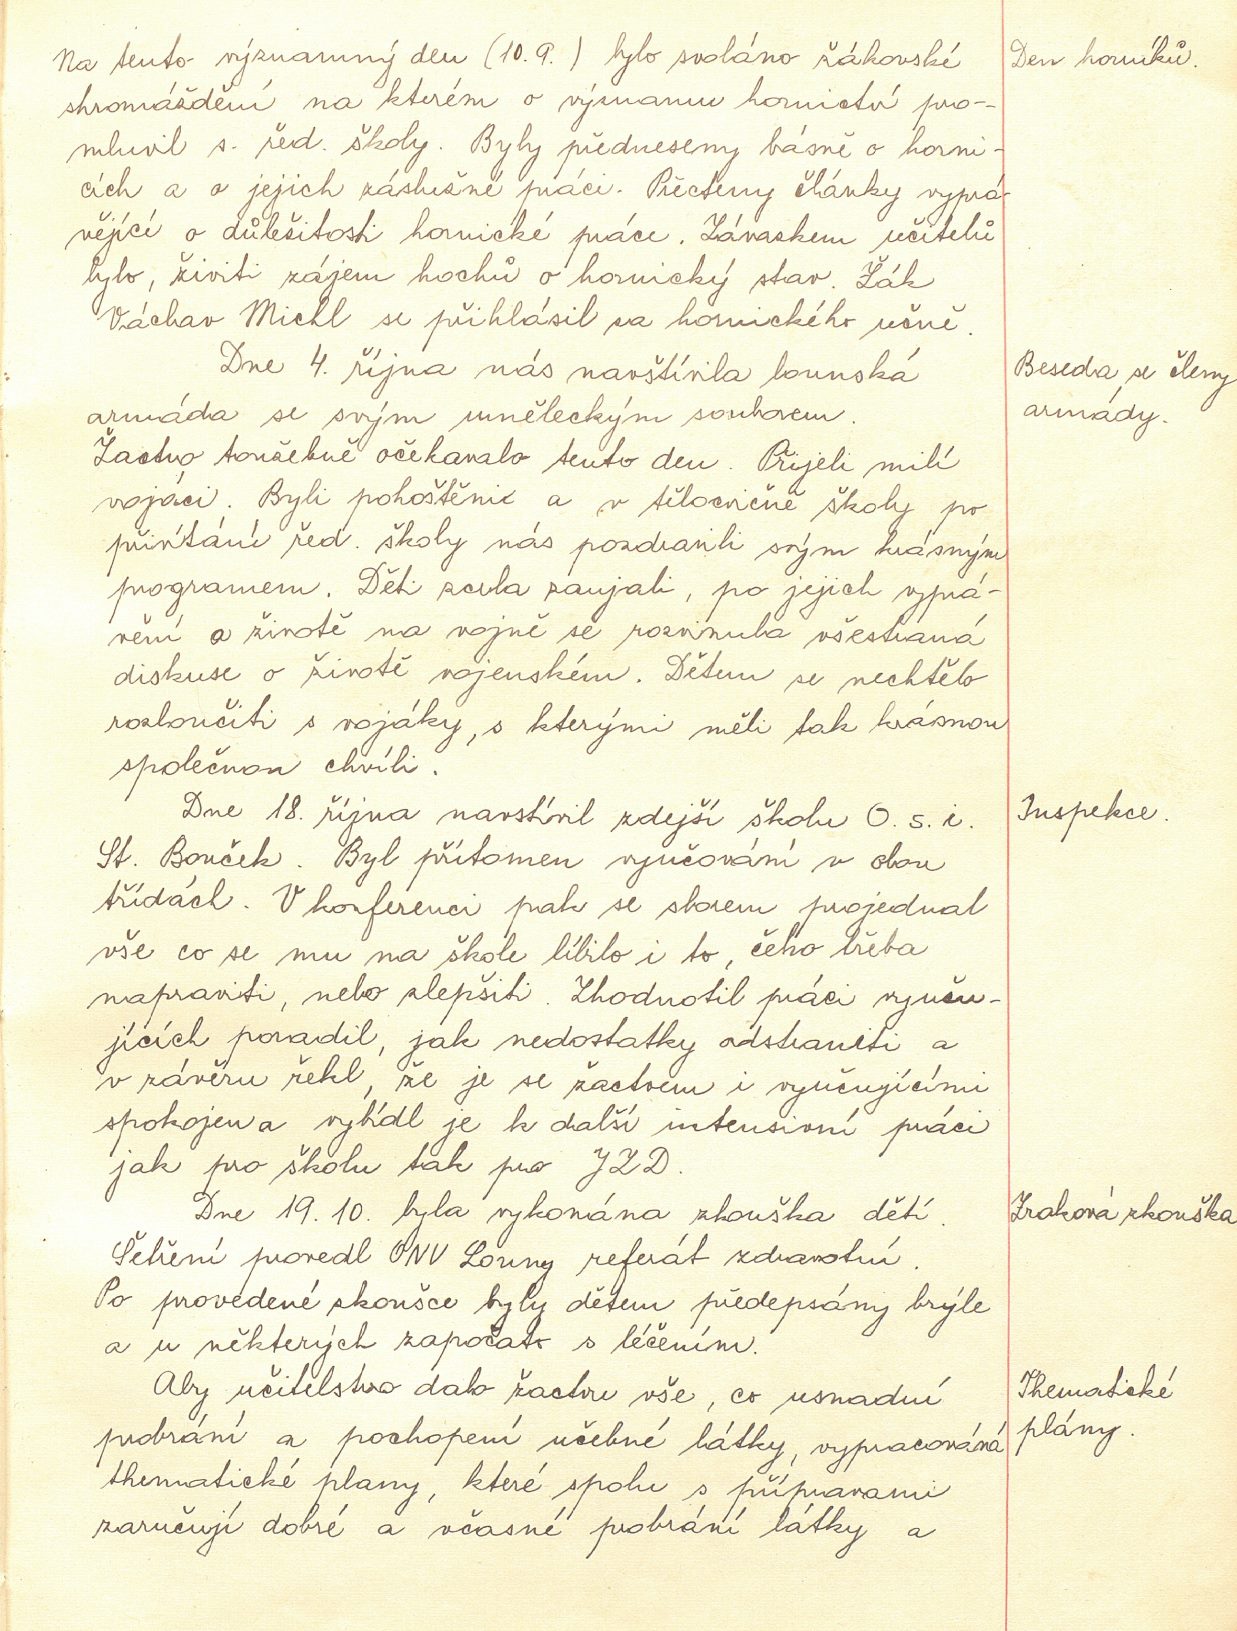 Na tento významný den (10. 9.) bylo svoláno žákovské
Den horníků.
shromáždění na kterém o významu hornictví pro-
mluvil s. řed. školy. Byly předneseny básně o horní-
cích a o jejich záslužné práci. Přečteny články vyprá-
vějící o důležitosti hornické práce. Závazkem učitelů
bylo, živiti zájem hochů o hornický stav. Žák
Václav Michl se přihlásil za hornického učně.
Dne 4. října nás navštívila lounská
Beseda se členy
armáda se svým uměleckým souborem.
armády.
Žactvo toužebně očekávalo tento den. Přijeli milí
vojáci. Byli pohoštěni a v tělocvičně školy po
přivítání řed. školy nás pozdravili svým krásným
programem. Děti zcela zaujali, po jejich vyprá-
vění o životě na vojně se rozvinula všestraná
diskuse o životě vojenském. Dětem se nechtělo
rozloučiti s vojáky, s kterými měli tak krásnou
společnou chvíli.
Dne 18. října navštívil zdejší školu O. s. i.
Inspekce.
St. Bouček. Byl přítomen vyučování v obou
třídách. V konferenci pak se sborem projednal
vše co se mu na škole líbilo i to, čeho třeba
napraviti, nebo zlepšiti. Zhodnotil práci vyuču-
jících poradil, jak nedostatky odstraniti a
v závěru řekl, že je se žactvem i vyučujícími
spokojen a vybídl je k další intensivní práci
jak pro školu tak pro JZD.
Dne 19. 10. byla vykonána zkouška dětí.
Zraková zkouška
Šetření provedl ONV Louny referát zdravotní.
Po provedené zkoušce byly dětem předepsány brýle
a u některých započato s léčením.
Aby učitelstvo dalo žactvu vše, co usnadní
Thematické
probrání a pochopení učebné látky, vypracovává
plány.
thematické plany, které spolu s přípravami
zaručují dobré a včasné probrání látky a